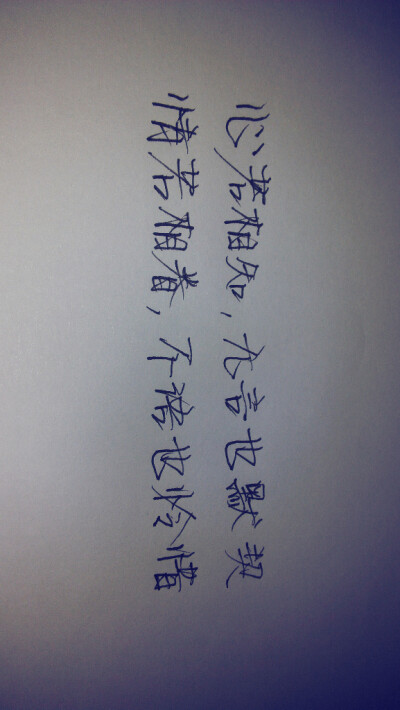 心若相知，无言也默契
情若相眷，不语也怜惜